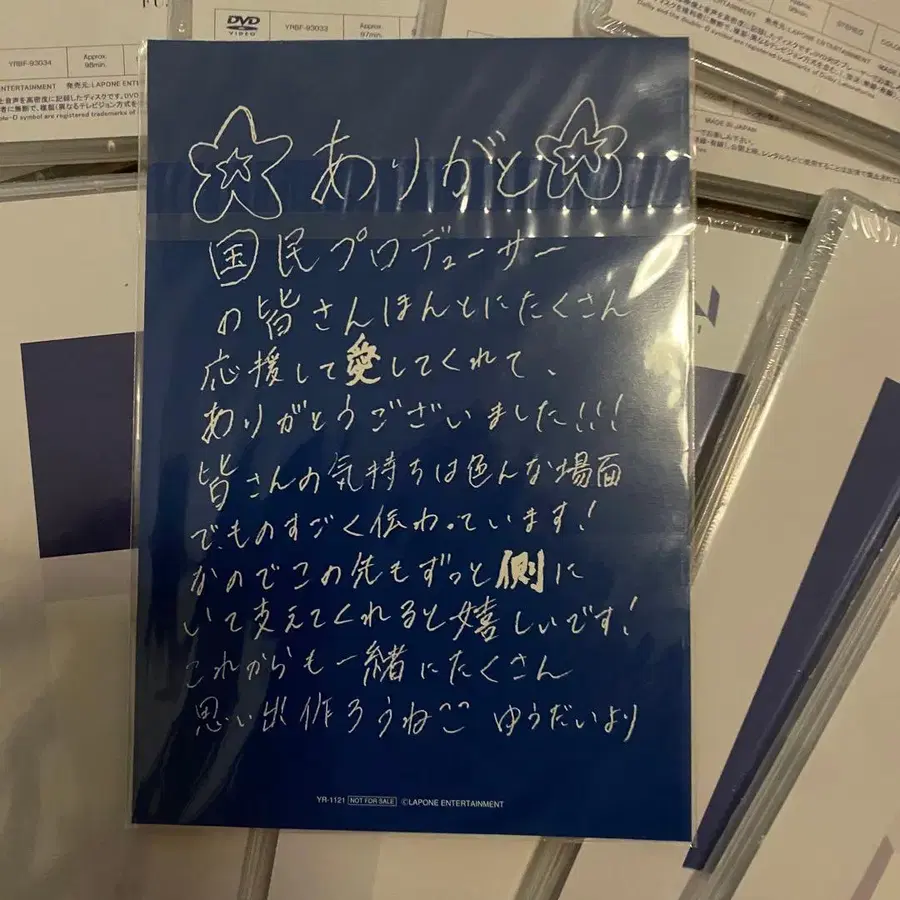 DVD VIDEO YRBF-93033 Approx. 97min.
YRBF-93034 Approx. 98min.
ENTERTAINMENT 発売元: LAPONE
MADE IN JAPAN
ありがと
国民プロデューサー
の皆さんほんとにたくさん
応援して愛してくれて、
ありがとうございました!!!
皆さんの気持ちは色んな場面
でものすごく伝わっています!
なのでこの先もずっと側に
いて支えてくれると嬉しいです!
これからも一緒にたくさん
思い出作ろうね ゆうだいより
YR-1121 NOT FOR SALE ©LAPONE ENTERTAINMENT